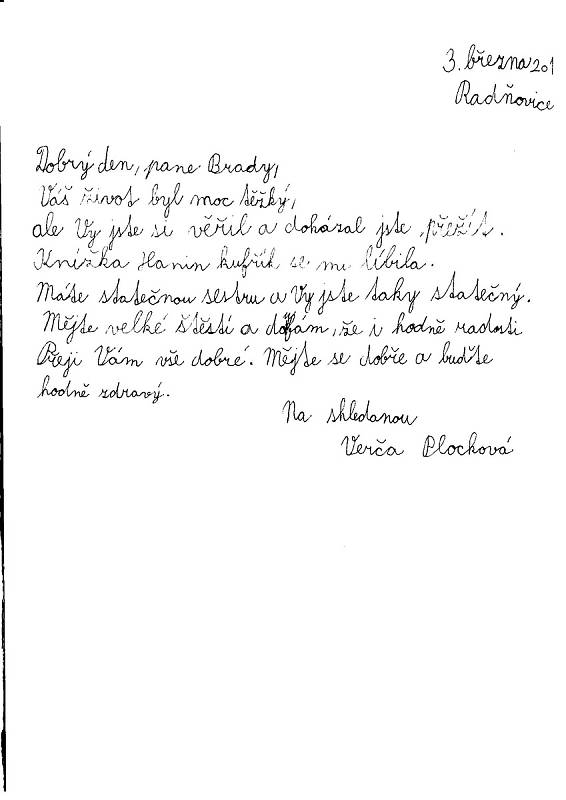 3. března 201
Radňovice
Dobrý den, pane Brady,
Váš život byl moc těžký,
ale Vy jste si věřil a dokázal jste přežít.
Knížka Hanin kufřík se mi líbila.
Máte statečnou sestru a Vy jste taky statečný.
Mějte velké štěstí a doufám, že i hodně radosti
Přeji Vám vše dobré. Mějte se dobře a buďte
hodně zdravý.
Na shledanou
Verča Plochová